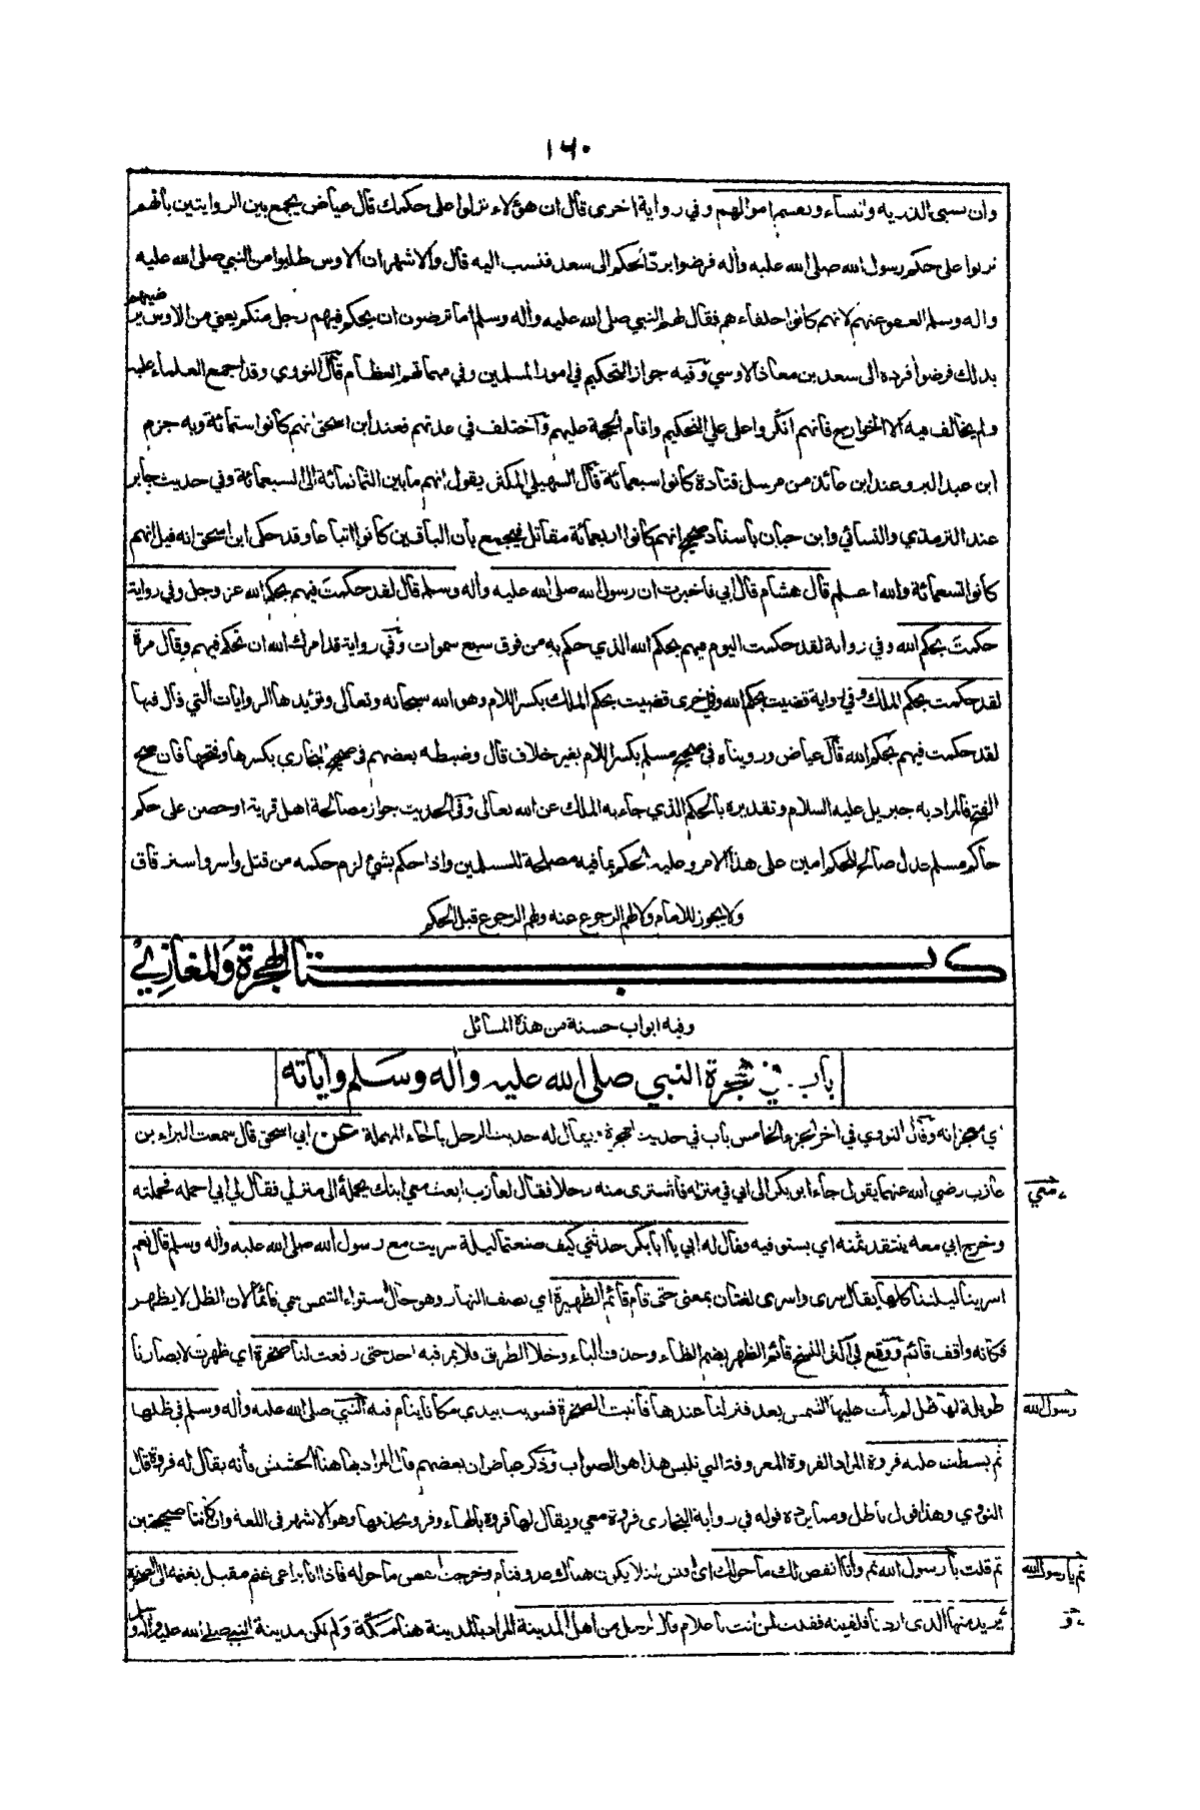 ١٦٠
وان تسبى الذرية والنساء وتقسم اموالهم وفي رواية اخرى قال ان هؤلاء نزلوا على حكمك قال عياض يجمع بين الروايتين بانهم
نزلوا على حكم رسول الله صلى الله عليه واله فرضوا برد الحكم الى سعد فنسب اليه قال والاشهر ان الاوس طلبوا من النبي صلى الله عليه
واله وسلم العفو عنهم لانهم كانوا حلفاءهم فقال لهم النبي صلى الله عليه واله وسلم اما ترضون ان يحكم فيهم رجل منكم يعني من الاوس يرضيهم
بذلك فرضوا فرده الى سعد بن معاذ الاوسي وفيه جواز التحكيم في امور المسلمين وفي مهماتهم العظام قال النووي وقد اجمع العلماء عليه
ولم يخالف فيه الا الخوارج فانهم انكروا على علي التحكيم واقام الحجة عليهم واختلف في عدتهم فعند ابن اسحق انهم كانوا ستمائة وبه جزم
ابن عبد البر وعند ابن عائذ من مرسل قتادة كانوا سبعمائة قال السهيلي المكثر يقول انهم ما بين الثمانمائة الى السبعمائة وفي حديث جابر
عند الترمذي والنسائي وابن حبان باسناد صحيح انهم كانوا اربعمائة مقاتل فيجمع بان الباقين كانوا اتباعا وقد حكى ابن اسحق انه قيل انهم
كانوا تسعمائة والله اعلم قال هشام قال ابي فاخبرت ان رسول الله صلى الله عليه واله وسلم قال لقد حكمت فيهم بحكم الله عز وجل وفي رواية
حكمت بحكم الله وفي رواية لقد حكمت اليوم فيهم بحكم الله الذي حكم به من فوق سبع سموات وفي رواية قد امرك الله ان تحكم فيهم وقال مرة
لقد حكمت بحكم الملك وفي رواية قضيت بحكم الله وفي اخرى قضيت بحكم الملك بكسر اللام وهو الله سبحانه وتعالى وتؤيدها الروايات التي قال فيها
لقد حكمت فيهم بحكم الله قال عياض ورويناه في صحيح مسلم بكسر اللام بغير خلاف قال وضبطه بعضهم في صحيح البخاري بكسرها وفتحها فان صح
الفتح فالمراد به جبريل عليه السلام وتقديره بالحكم الذي جاء به الملك عن الله تعالى وفي الحديث جواز مصالحة اهل قرية او حصن على حكم
حاكم مسلم عدل صالح للحكم امين على هذا الامر وعليه الحكم بما فيه مصلحة للمسلمين واذا حكم بشئ لزم حكمه من قتل واسر واسترقاق
ولا يجوز للامام ولا لهم الرجوع عنه ولهم الرجوع قبل الحكم
كتاب الهجرة والمغازي
وفيه ابواب حسنة من هذه المسائل
باب في هجرة النبي صلى الله عليه واله وسلم واياته
اي معجزاته وقال النووي في اخر الجزء الخامس باب في حديث الهجرة ويقال له حديث الرحل بالحاء المهملة عن ابي اسحق قال سمعت البراء بن
عازب رضي الله عنهما يقول جاء ابو بكر الى ابي في منزله فاشترى منه رحلا فقال لعازب ابعث معي ابنك يحمله الى منزلي فقال لي ابي احمله فحملته
معي
وخرج ابي معه ينتقد ثمنه اي يستوفيه وقال له ابي يا ابا بكر حدثني كيف صنعتما ليلة سريت مع رسول الله صلى الله عليه واله وسلم قال نعم
اسرينا ليلتنا كلها يقال سرى واسرى لغتان بمعنى حتى قام قائم الظهيرة اي نصف النهار وهو حال استواء الشمس سمي قائما لان الظل لا يظهر
فكانه واقف قائم ووقع في اكثر النسخ قائم الظهر بضم الظاء وحذف الياء وخلا الطريق فلا يمر فيه احد حتى رفعت لنا صخرة اي ظهرت لابصارنا
طويلة لها ظل لم تأت عليه الشمس بعد فنزلنا عندها فاتيت الصخرة فسويت بيدي مكانا ينام فيه النبي صلى الله عليه واله وسلم في ظلها
رسول الله
ثم بسطت عليه فروة المراد الفروة المعروفة التي تلبس هذا هو الصواب وذكر عياض ان بعضهم قال المراد بها هنا الحشيش فانه يقال له فروة قال
النووي وهذا قول باطل ومما يرده قوله في رواية البخاري فروة معي ويقال لها فروة بالهاء وفرو بحذفها وهو الاشهر في اللغة وان كانتا صحيحتين
ثم قلت يا رسول الله نم وانا انفض لك ما حولك اي افتش لئلا يكون هناك عدو فنام وخرجت انفض ما حوله فاذا انا براعي غنم مقبل بغنمه الى الصخرة
نم يا رسول الله
يريد منها الذي اردنا فلقيته فقلت لمن انت يا غلام قال لرجل من اهل المدينة المراد بالمدينة هنا مكة ولم تكن مدينة النبي صلى الله عليه واله و